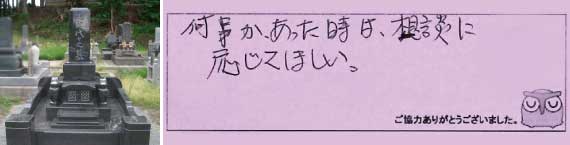 何事か、あった時は、相談に
応じてほしい。
ご協力ありがとうございました。